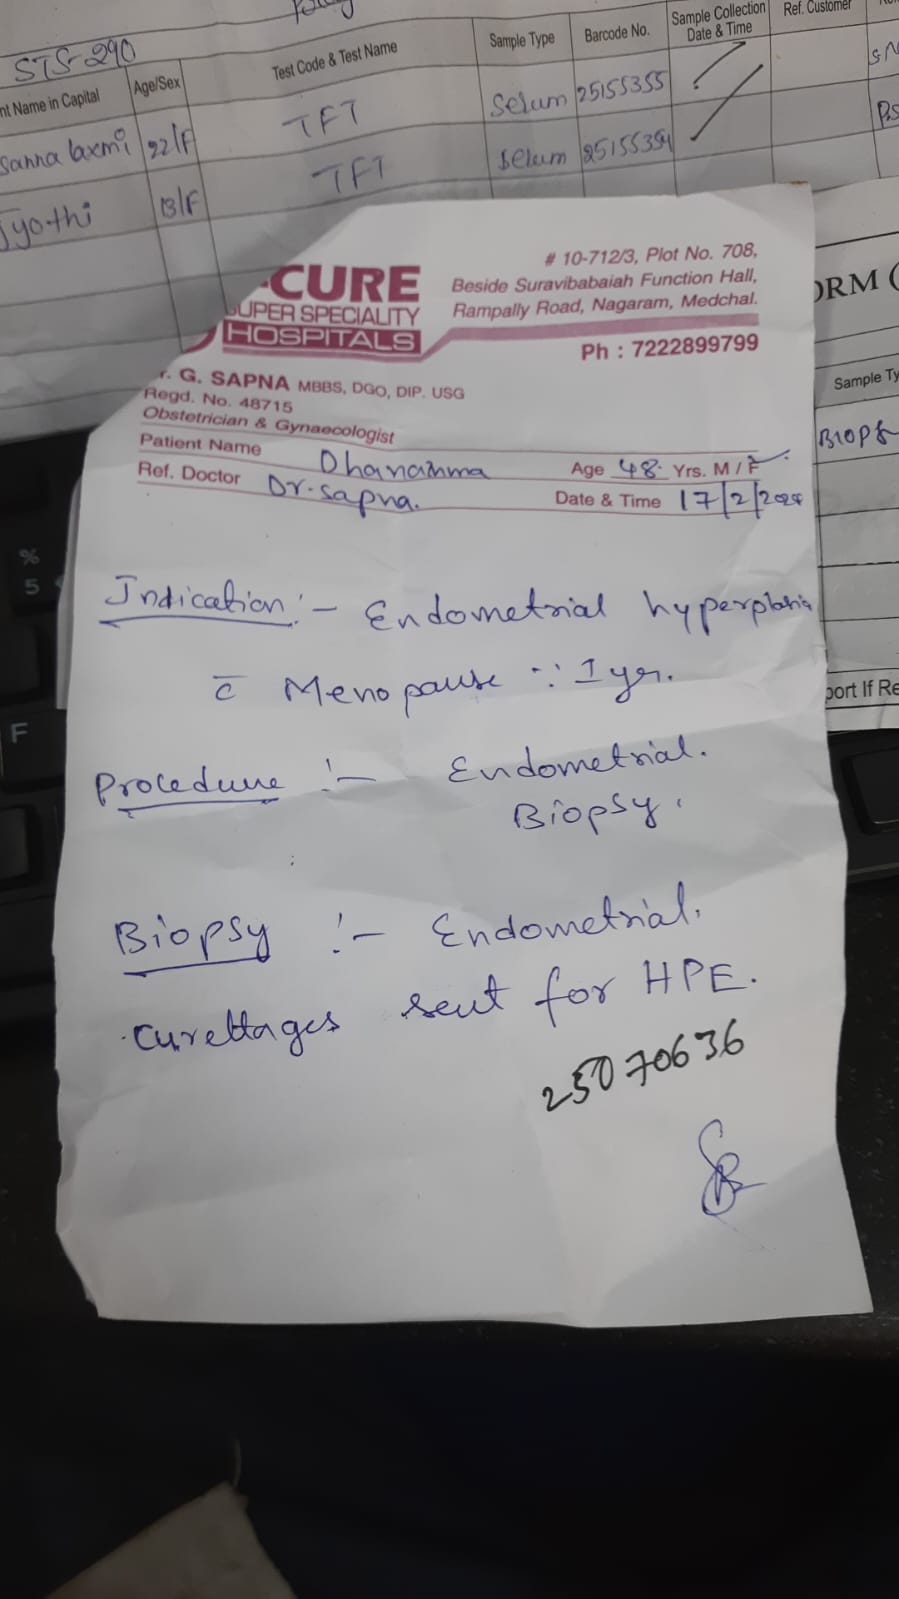 STS-290
nt Name in Capital Age/Sex Test Code & Test Name Sample Type Barcode No. Sample Collection Date & Time Ref. Customer
sanna laxmi 22/F TFT Selum 25155355
Jyothi 13/F TFT Selum 25155354
-CURE
SUPER SPECIALITY
HOSPITALS
# 10-712/3, Plot No. 708,
Beside Suravibabaiah Function Hall,
Rampally Road, Nagaram, Medchal.
Ph : 7222899799
r. G. SAPNA MBBS, DGO, DIP. USG
Regd. No. 48715
Obstetrician & Gynaecologist
Patient Name Dhanamma Age 48 Yrs. M / F
Ref. Doctor Dr. sapna. Date & Time 17/2/2024
Indication :- Endometrial hyperplasia
c̄ Menopause ∵ 1 yr.
Procedure :- Endometrial.
Biopsy.
Biopsy :- Endometrial.
curettages sent for HPE.
25070636
ORM (
Sample Ty
BIOPS
port If Re
% 5
F